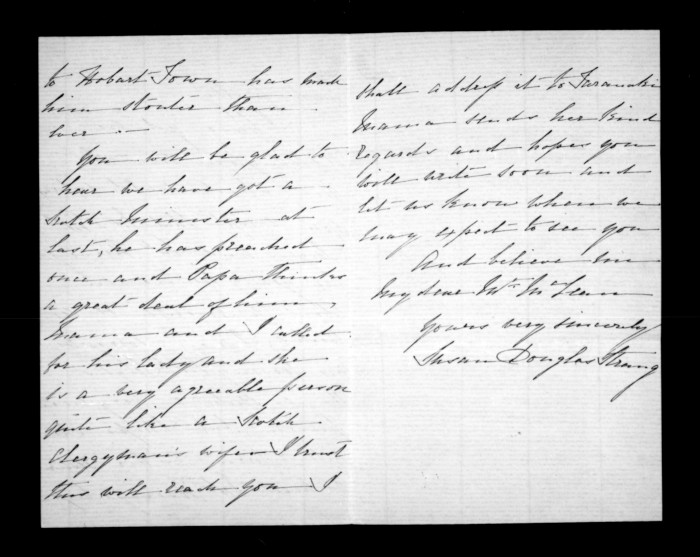 to Hobart Town has made
him stouter than
ever. —
You will be glad to
hear we have got a
Scotch Minister at
last, he has preached
once and Papa thinks
a great deal of him,
Mama and I called
for his lady and she
is a very agreeable person
quite like a Scotch
Clergyman's wife. I trust
this will reach you I
shall address it to Taranaki
Mama sends her kind
regards and hopes you
will write soon and
let us know when we
may expect to see you
And believe me
My dear Mr. McLean
Yours very sincerely
Susan Douglas Strang